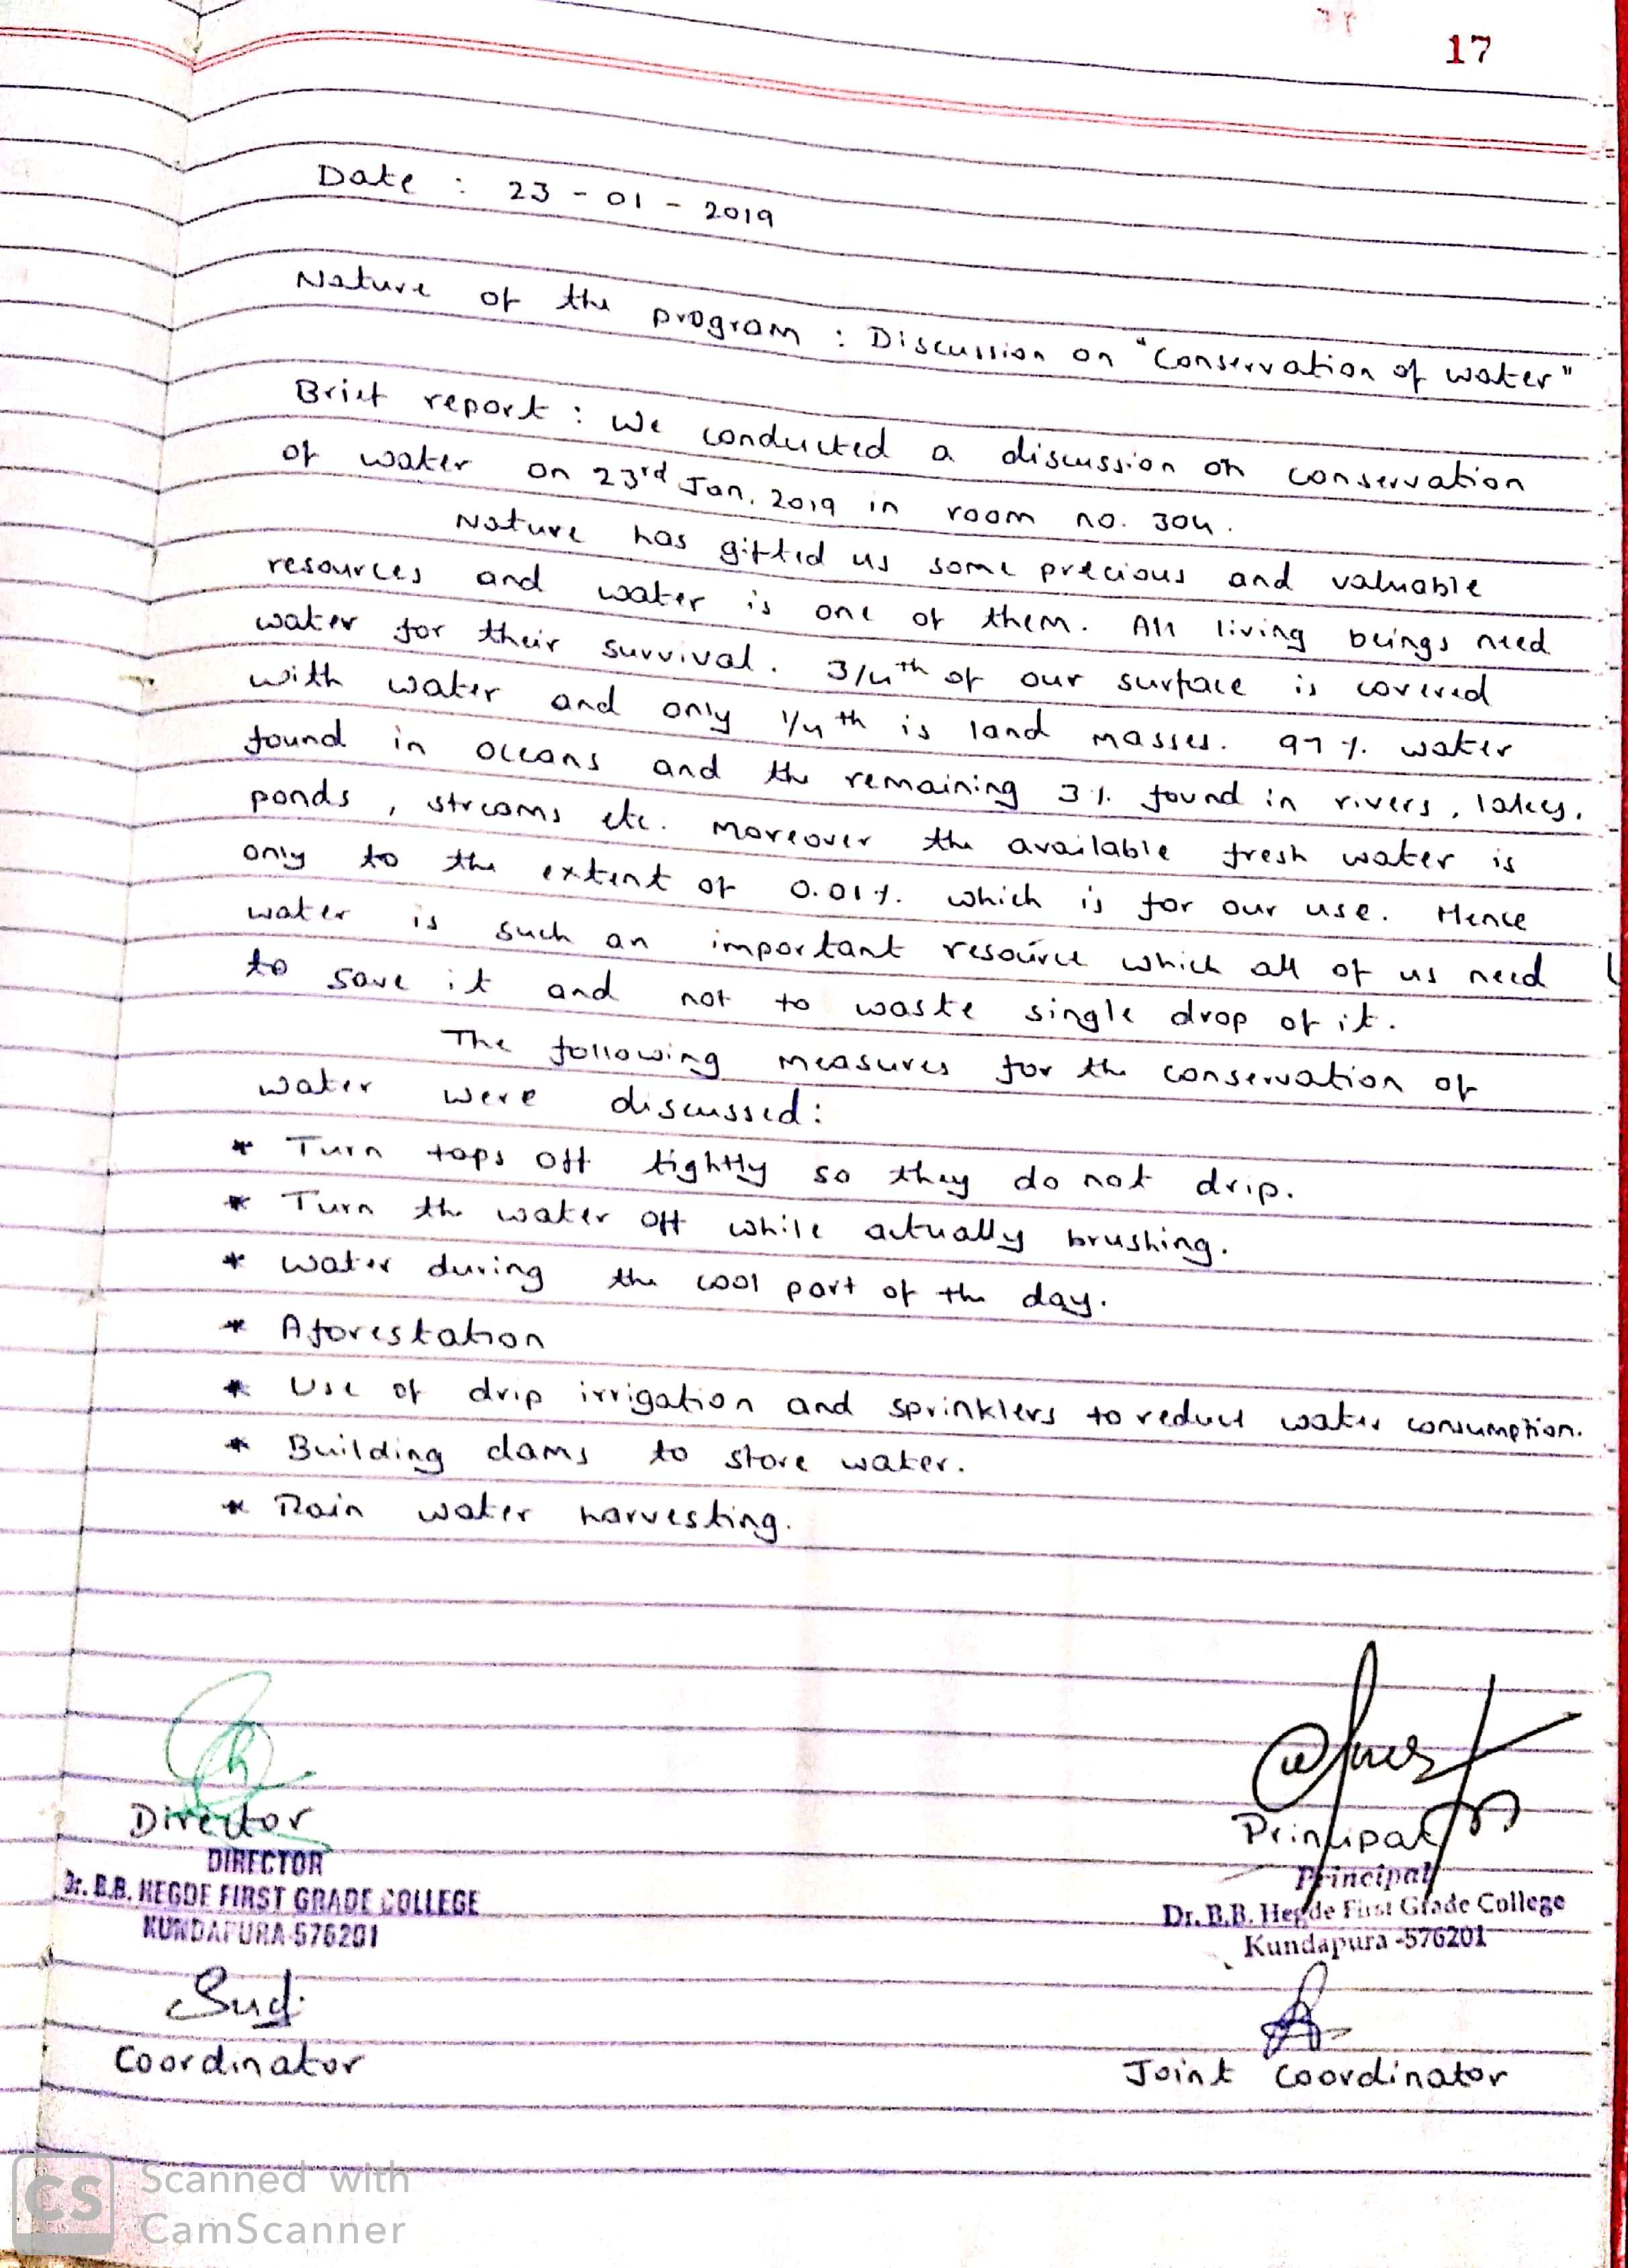 17
Date : 23 - 01 - 2019
Nature of the program : Discussion on "Conservation of water"
Brief report : We conducted a discussion on conservation
of water on 23rd Jan. 2019 in room no. 304.
Nature has gifted us some precious and valuable
resources and water is one of them. All living beings need
water for their survival. 3/4th of our surface is covered
with water and only 1/4th is land masses. 97% water
found in oceans and the remaining 3% found in rivers, lakes,
ponds, streams etc. Moreover the available fresh water is
only to the extent of 0.01% which is for our use. Hence
water is such an important resource which all of us need
to save it and not to waste single drop of it.
The following measures for the conservation of
water were discussed:
* Turn taps off tightly so they do not drip.
* Turn the water off while actually brushing.
* Water during the cool part of the day.
* Aforestation
* Use of drip irrigation and sprinklers to reduce water consumption.
* Building dams to store water.
* Rain water harvesting.
Director
DIRECTOR
Dr. B.B. HEGDE FIRST GRADE COLLEGE
KUNDAPURA-576201
Principal
Principal
Dr. B.B. Hegde First Grade College
Kundapura -576201
Coordinator
Joint Coordinator
CS Scanned with
CamScanner